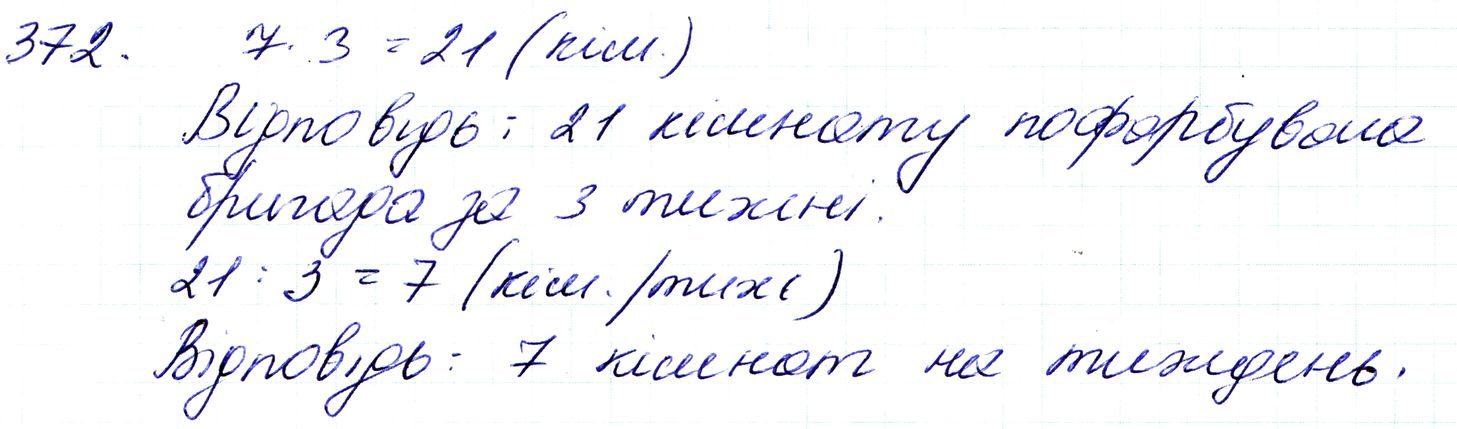 372. 7 · 3 = 21 (кім.)
Відповідь: 21 кімнату пофарбувала
бригада за 3 тижні.
21 : 3 = 7 (кім./тиж)
Відповідь: 7 кімнат на тиждень.